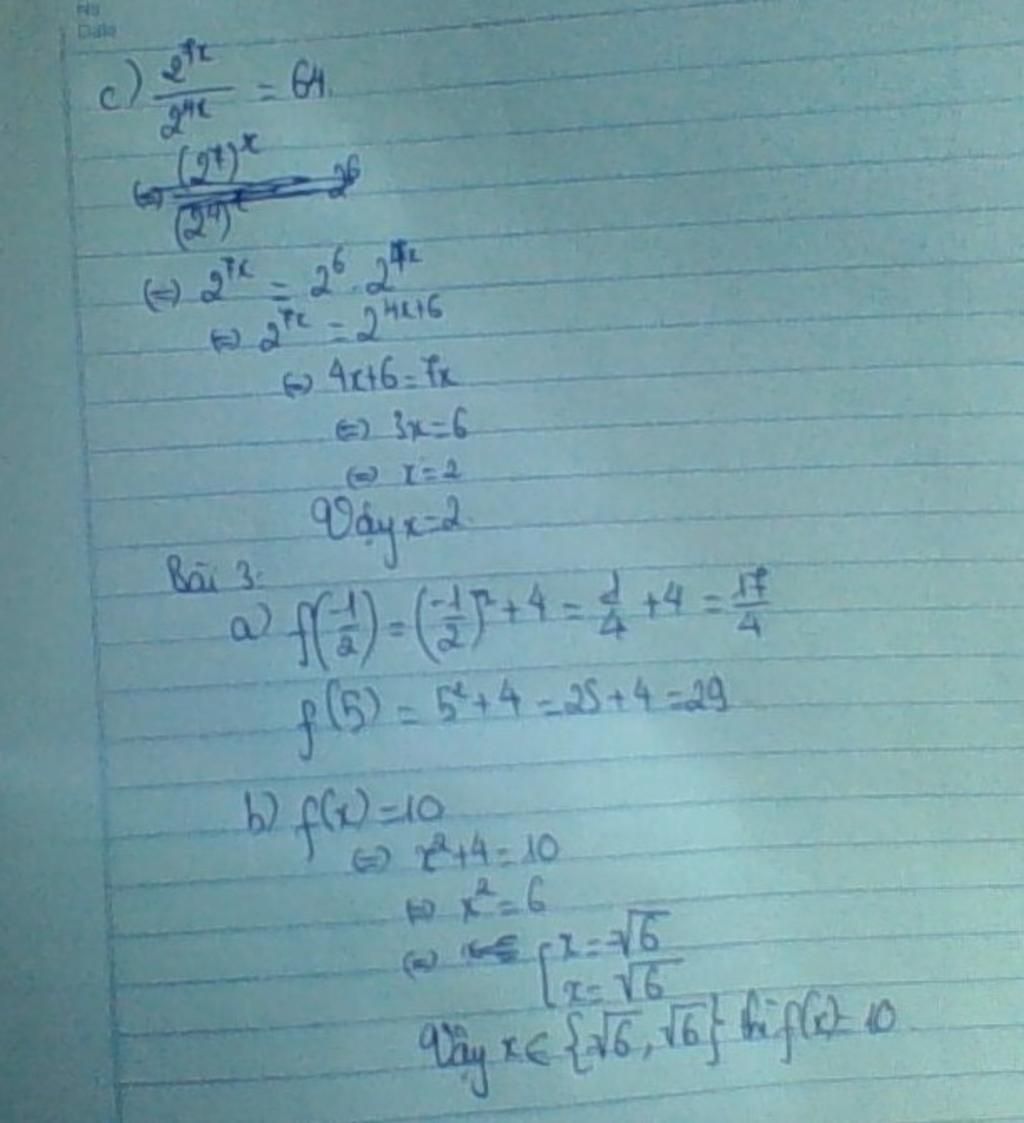 No
Date
c) 2^{7x}/2^{4x} = 64
⇔ (2^7)^x/(2^4)^x = 2^6
⇔ 2^{7x} = 2^6 . 2^{4x}
⇔ 2^{7x} = 2^{4x+6}
⇔ 4x+6=7x
⇔ 3x=6
⇔ x=2
Vậy x=2.
Bài 3:
a) f(-1/2) = (-1/2)^2 + 4 = 1/4 + 4 = 17/4
f(5) = 5^2 + 4 = 25 + 4 = 29
b) f(x) = 10
⇔ x^2+4=10
⇔ x^2 = 6
⇔ [x = -√6
x = √6
Vậy x ∈ {-√6, √6} thì f(x) = 10